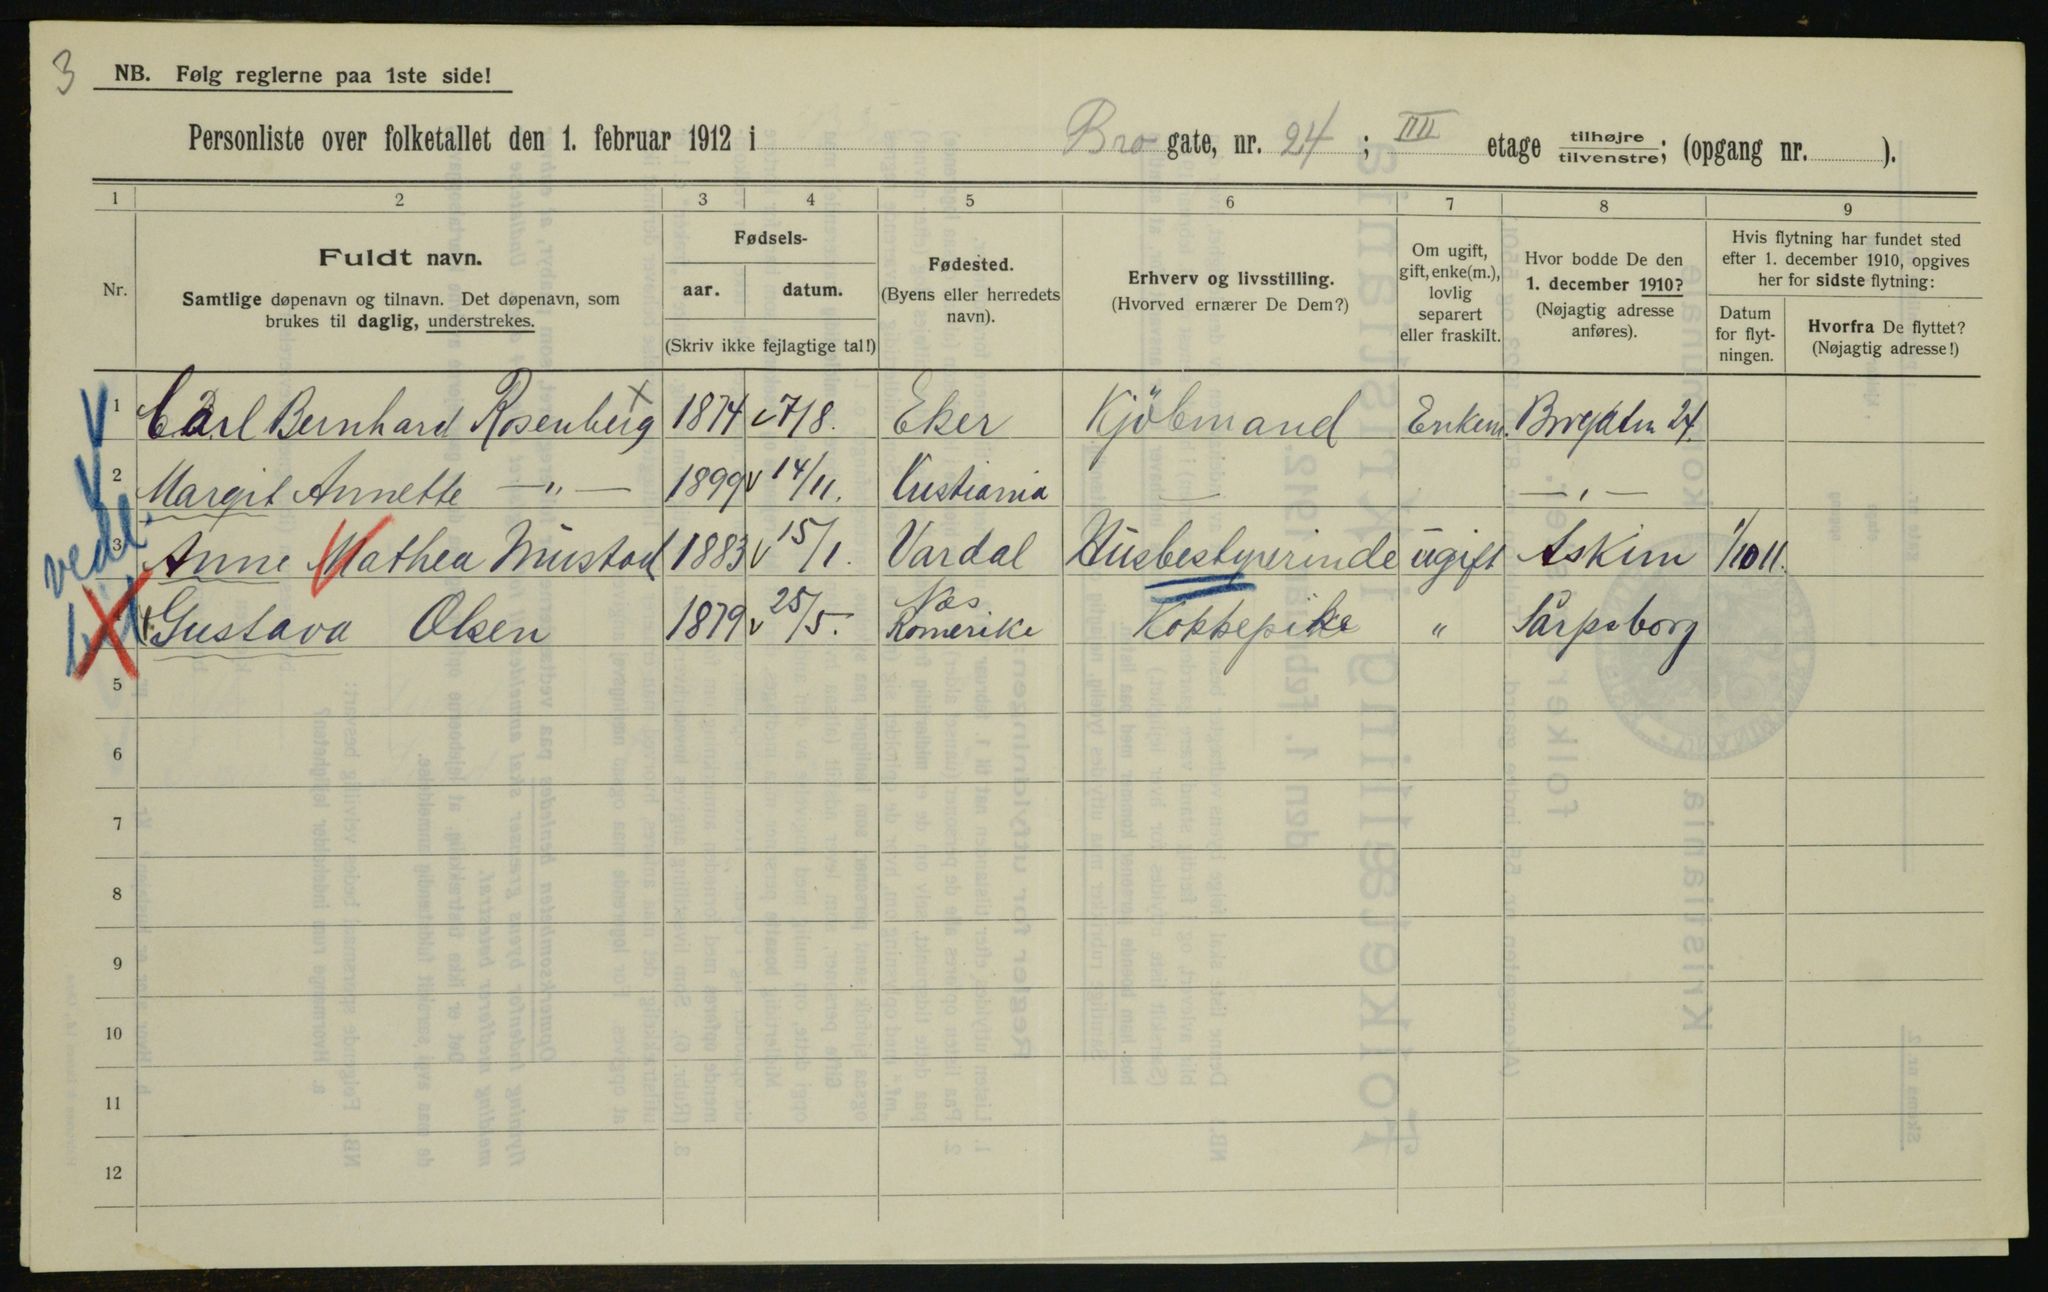 3
NB. Følg reglerne paa 1ste side!
Personliste over folketallet den 1. februar 1912 i Bro gate, nr. 24 ; III etage tilhøjre/tilvenstre; (opgang nr. ).
1 2 3 4 5 6 7 8 9
Nr.
Fuldt navn.
Samtlige døpenavn og tilnavn. Det døpenavn, som
brukes til daglig, understrekes.
Fødsels-
aar. datum.
(Skriv ikke fejlagtige tal!)
Fødested.
(Byens eller herredets
navn).
Erhverv og livsstilling.
(Hvorved ernærer De Dem?)
Om ugift,
gift, enke(m.),
lovlig
separert
eller fraskilt.
Hvor bodde De den
1. december 1910?
(Nøjagtig adresse
anføres).
Hvis flytning har fundet sted
efter 1. december 1910, opgives
her for sidste flytning:
Datum
for flyt-
ningen.
Hvorfra De flyttet?
(Nøjagtig adresse!)
1 Carl Bernhard Rosenberg 1874 17/8. Eker Kjöbmand Enkem. Brogaten 24.
2 Margit Annette —"— 1899 14/11. Kristiania — —"—
3 Anne Mathea Mustad 1883 15/1. Vardal Husbestyrerinde ugift Askim 1/10 11.
4 Gustava Olsen 1879 25/5. Næs Romerike Kokkepike " Sarpsborg
vedl.
5
6
7
8
9
10
11
12